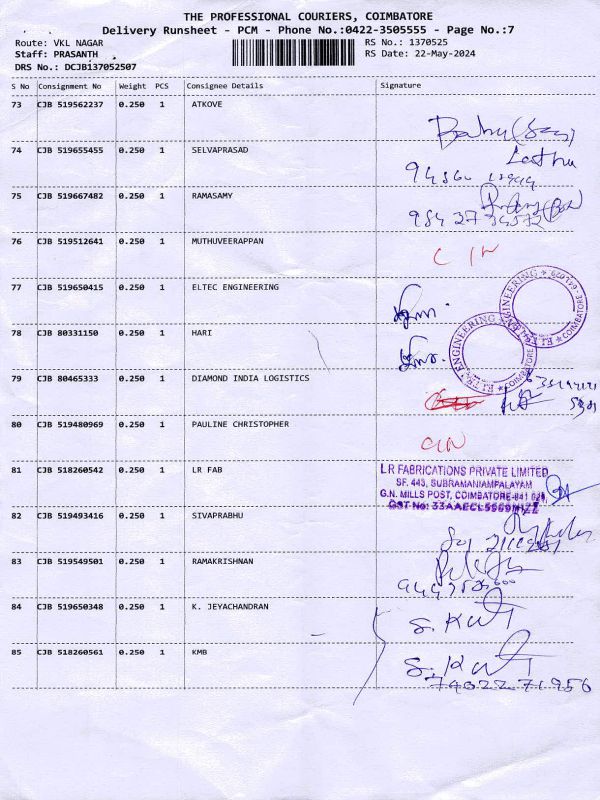 THE PROFESSIONAL COURIERS, COIMBATORE
Delivery Runsheet - PCM - Phone No.:0422-3505555 - Page No.:7
Route: VKL NAGAR
Staff: PRASANTH
DRS No.: DCJB137052507
RS No.: 1370525
RS Date: 22-May-2024
S No Consignment No Weight PCS Consignee Details Signature
73 CJB 519562237 0.250 1 ATKOVE
74 CJB 519655455 0.250 1 SELVAPRASAD
75 CJB 519667482 0.250 1 RAMASAMY
76 CJB 519512641 0.250 1 MUTHUVEERAPPAN
77 CJB 519650415 0.250 1 ELTEC ENGINEERING
ENGINEERING ★ COIMBATORE - 641 029
78 CJB 80331150 0.250 1 HARI
ENGINEERING ★ COIMBATORE
79 CJB 80465333 0.250 1 DIAMOND INDIA LOGISTICS
80 CJB 519480969 0.250 1 PAULINE CHRISTOPHER
81 CJB 518260542 0.250 1 LR FAB
LR FABRICATIONS PRIVATE LIMITED
SF. 443, SUBRAMANIAMPALAYAM
G.N. MILLS POST, COIMBATORE-641 029
82 CJB 519493416 0.250 1 SIVAPRABHU
83 CJB 519549501 0.250 1 RAMAKRISHNAN
84 CJB 519650348 0.250 1 K. JEYACHANDRAN
85 CJB 518260561 0.250 1 KMB